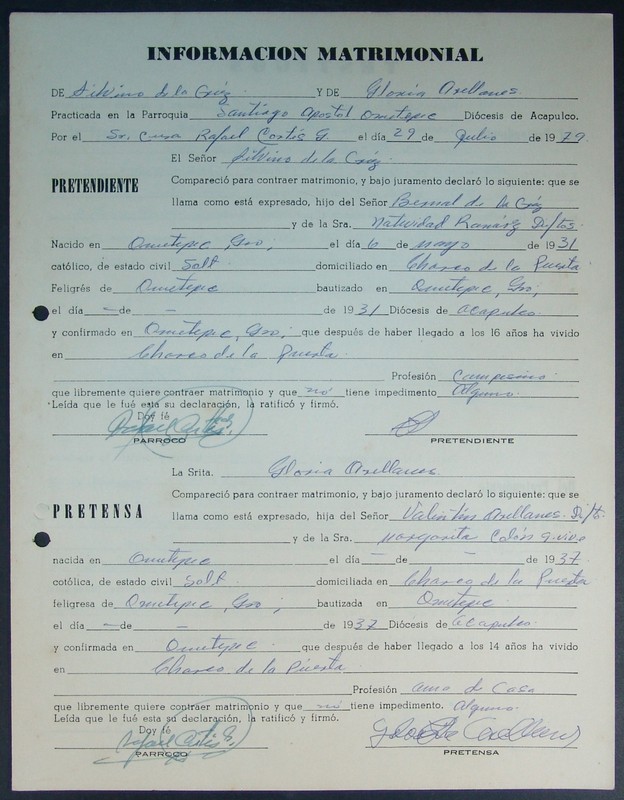 INFORMACION MATRIMONIAL
DE Silvino de la Cruz Y DE Gloria Arellanes.
Practicada en la Parroquia Santiago Apostol Ometepe Diócesis de Acapulco.
Por el Sr. Cura Rafael Cortés G. el día 29 de Julio de 1979.
El Señor Silvino de la Cruz.
PRETENDIENTE
Compareció para contraer matrimonio, y bajo juramento declaró lo siguiente: que se
llama como está expresado, hijo del Señor Bernal de la Cruz
y de la Sra. Natividad Ramírez Diftos.
Nacido en Ometepe, Gro; el día 6 de mayo de 1931
católico, de estado civil Solt domiciliado en Charco de la Puerta
Feligrés de Ometepe bautizado en Ometepe, Gro;
el día — de — de 1931 Diócesis de Acapulco
y confirmado en Ometepe, Gro; que después de haber llegado a los 16 años ha vivido
en Charco de la Puerta.
Profesión campesino.
que libremente quiere contraer matrimonio y que no tiene impedimento alguno.
Leída que le fué esta su declaración, la ratificó y firmó.
Doy fé
Rafael Cortés G.
PARROCO PRETENDIENTE
La Srita. Gloria Arellanes
PRETENSA
Compareció para contraer matrimonio, y bajo juramento declaró lo siguiente: que se
llama como está expresado, hija del Señor Valentín Arellanes. Dift.
y de la Sra. Margarita Colón q. vive
nacida en Ometepe el día — de — de 1937.
cotólica, de estado civil Solt domiciliada en Charco de la Puerta
feligresa de Ometepe, Gro; bautizada en Ometepe
el día — de — de 1937 Diócesis de Acapulco.
y confirmada en Ometepe que después de haber llegado a los 14 años ha vivido
en Charco de la Puerta.
Profesión ama de Casa
que libremente quiere contraer matrimonio y que no tiene impedimento. alguno.
Leída que le fué esta su declaración, la ratificó y firmó.
Doy fé
Rafael Cortés G.
PARROCO PRETENSA